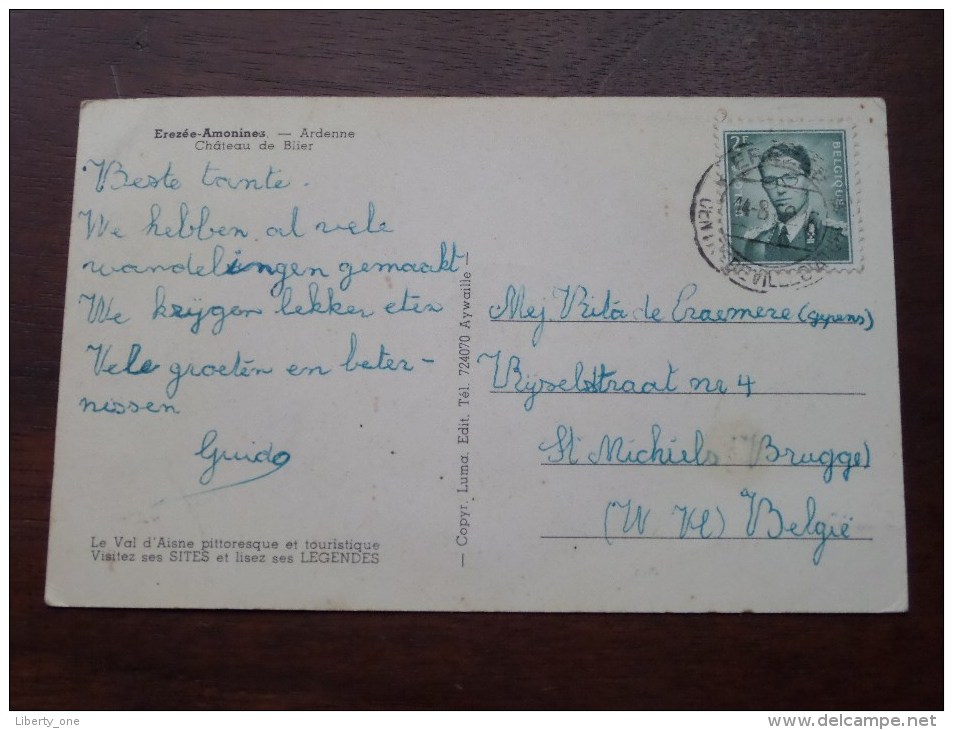 Erezée-Amonines. — Ardenne
Château de Blier
Beste tante.
We hebben al vele
wandelingen gemaakt
We krijgen lekker eten
Vele groeten en beter-
nissen
Guido
Le Val d'Aisne pittoresque et touristique
Visitez ses SITES et lisez ses LEGENDES
— Copyr. Luma. Edit. Tél. 724070 Aywaille —
2F
BELGIQUE
14-8
Mej Rita de Craemere (Gypens)
Rijselstraat nr 4
St Michiels Brugge)
(W Vl) België
Liberty_one
www.delcampe.net